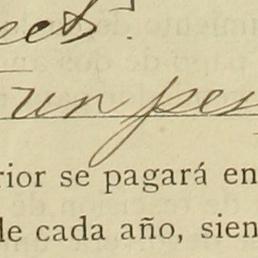 un pes
rior se pagará en
de cada año, sien